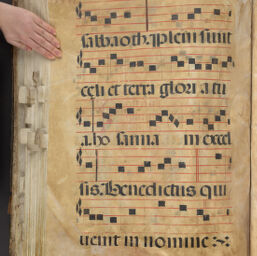 sabbaoth. pleni sunt
celi et terra glori a tu
a. ho sanna in excel
sis. Benedictus qui
uenit in nomine